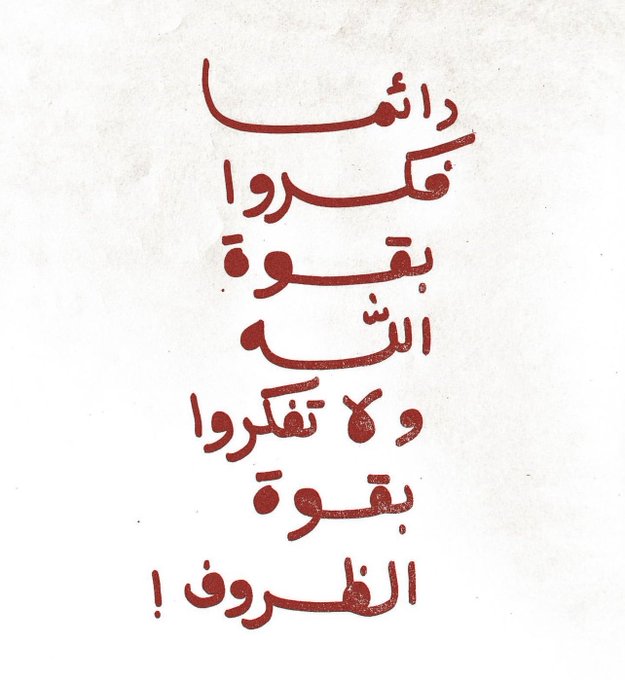 دائما
فكروا
بقوة
اللّه
و لا تفكروا
بقوة
الظروف !